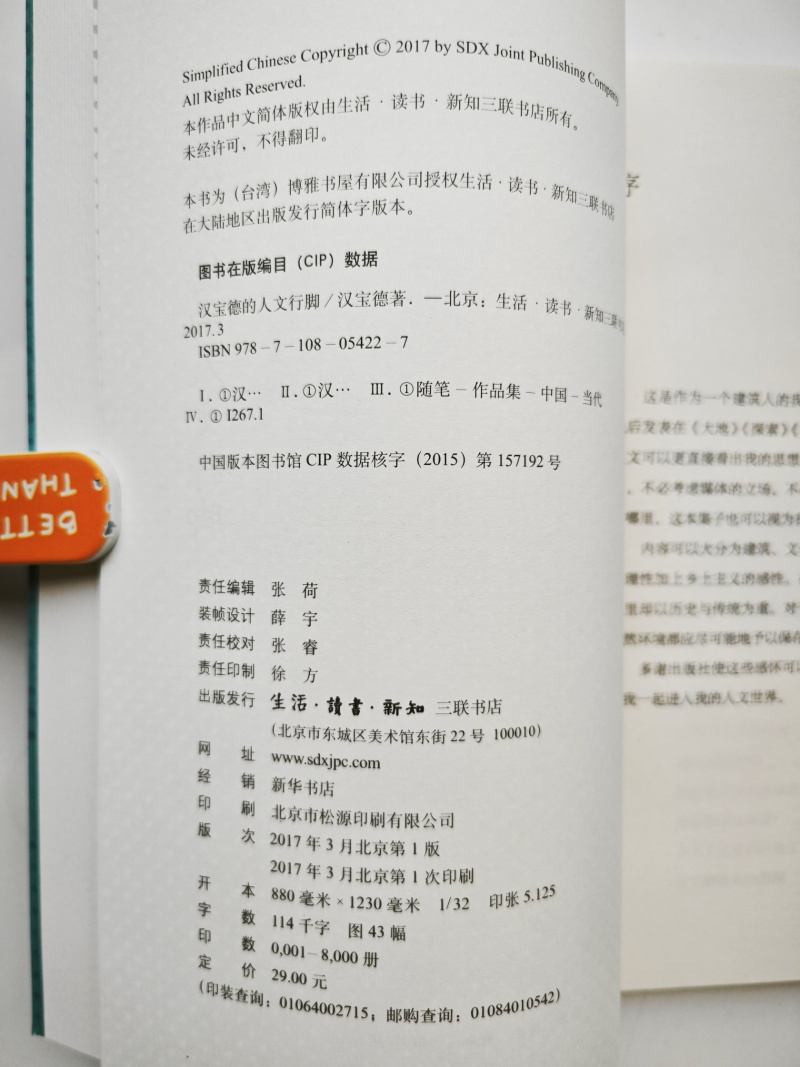 Simplified Chinese Copyright © 2017 by SDX Joint Publishing Company.
All Rights Reserved.
本作品中文简体版权由生活·读书·新知三联书店所有。
未经许可，不得翻印。
本书为（台湾）博雅书屋有限公司授权生活·读书·新知三联书店
在大陆地区出版发行简体字版本。
图书在版编目（CIP）数据
汉宝德的人文行脚／汉宝德著．—北京：生活·读书·新知三联
2017.3
ISBN 978－7－108－05422－7
Ⅰ.①汉… Ⅱ.①汉… Ⅲ.①随笔－作品集－中国－当代
Ⅳ.①I267.1
中国版本图书馆 CIP 数据核字（2015）第 157192 号
责任编辑 张 荷
装帧设计 薛 宇
责任校对 张 睿
责任印制 徐 方
出版发行 生活·讀書·新知 三联书店
（北京市东城区美术馆东街 22 号 100010）
网 址 www.sdxjpc.com
经 销 新华书店
印 刷 北京市松源印刷有限公司
版 次 2017 年 3 月北京第 1 版
2017 年 3 月北京第 1 次印刷
开 本 880 毫米×1230 毫米 1/32 印张 5.125
字 数 114 千字 图 43 幅
印 数 0,001－8,000 册
定 价 29.00 元
（印装查询：01064002715；邮购查询：01084010542）
BETT
THAN
序
这是作为一个建筑人的
后发表在《大地》《探索》《
文可以更直接看出我的思想
，不必考虑媒体的立场，不
哪里，这本集子也可以视为
内容可以大分为建筑、文
理性加上乡土主义的感性。
里却以历史与传统为重。对
然环境都应尽可能地予以保存
多谢出版社使这些感怀可以
我一起进入我的人文世界。